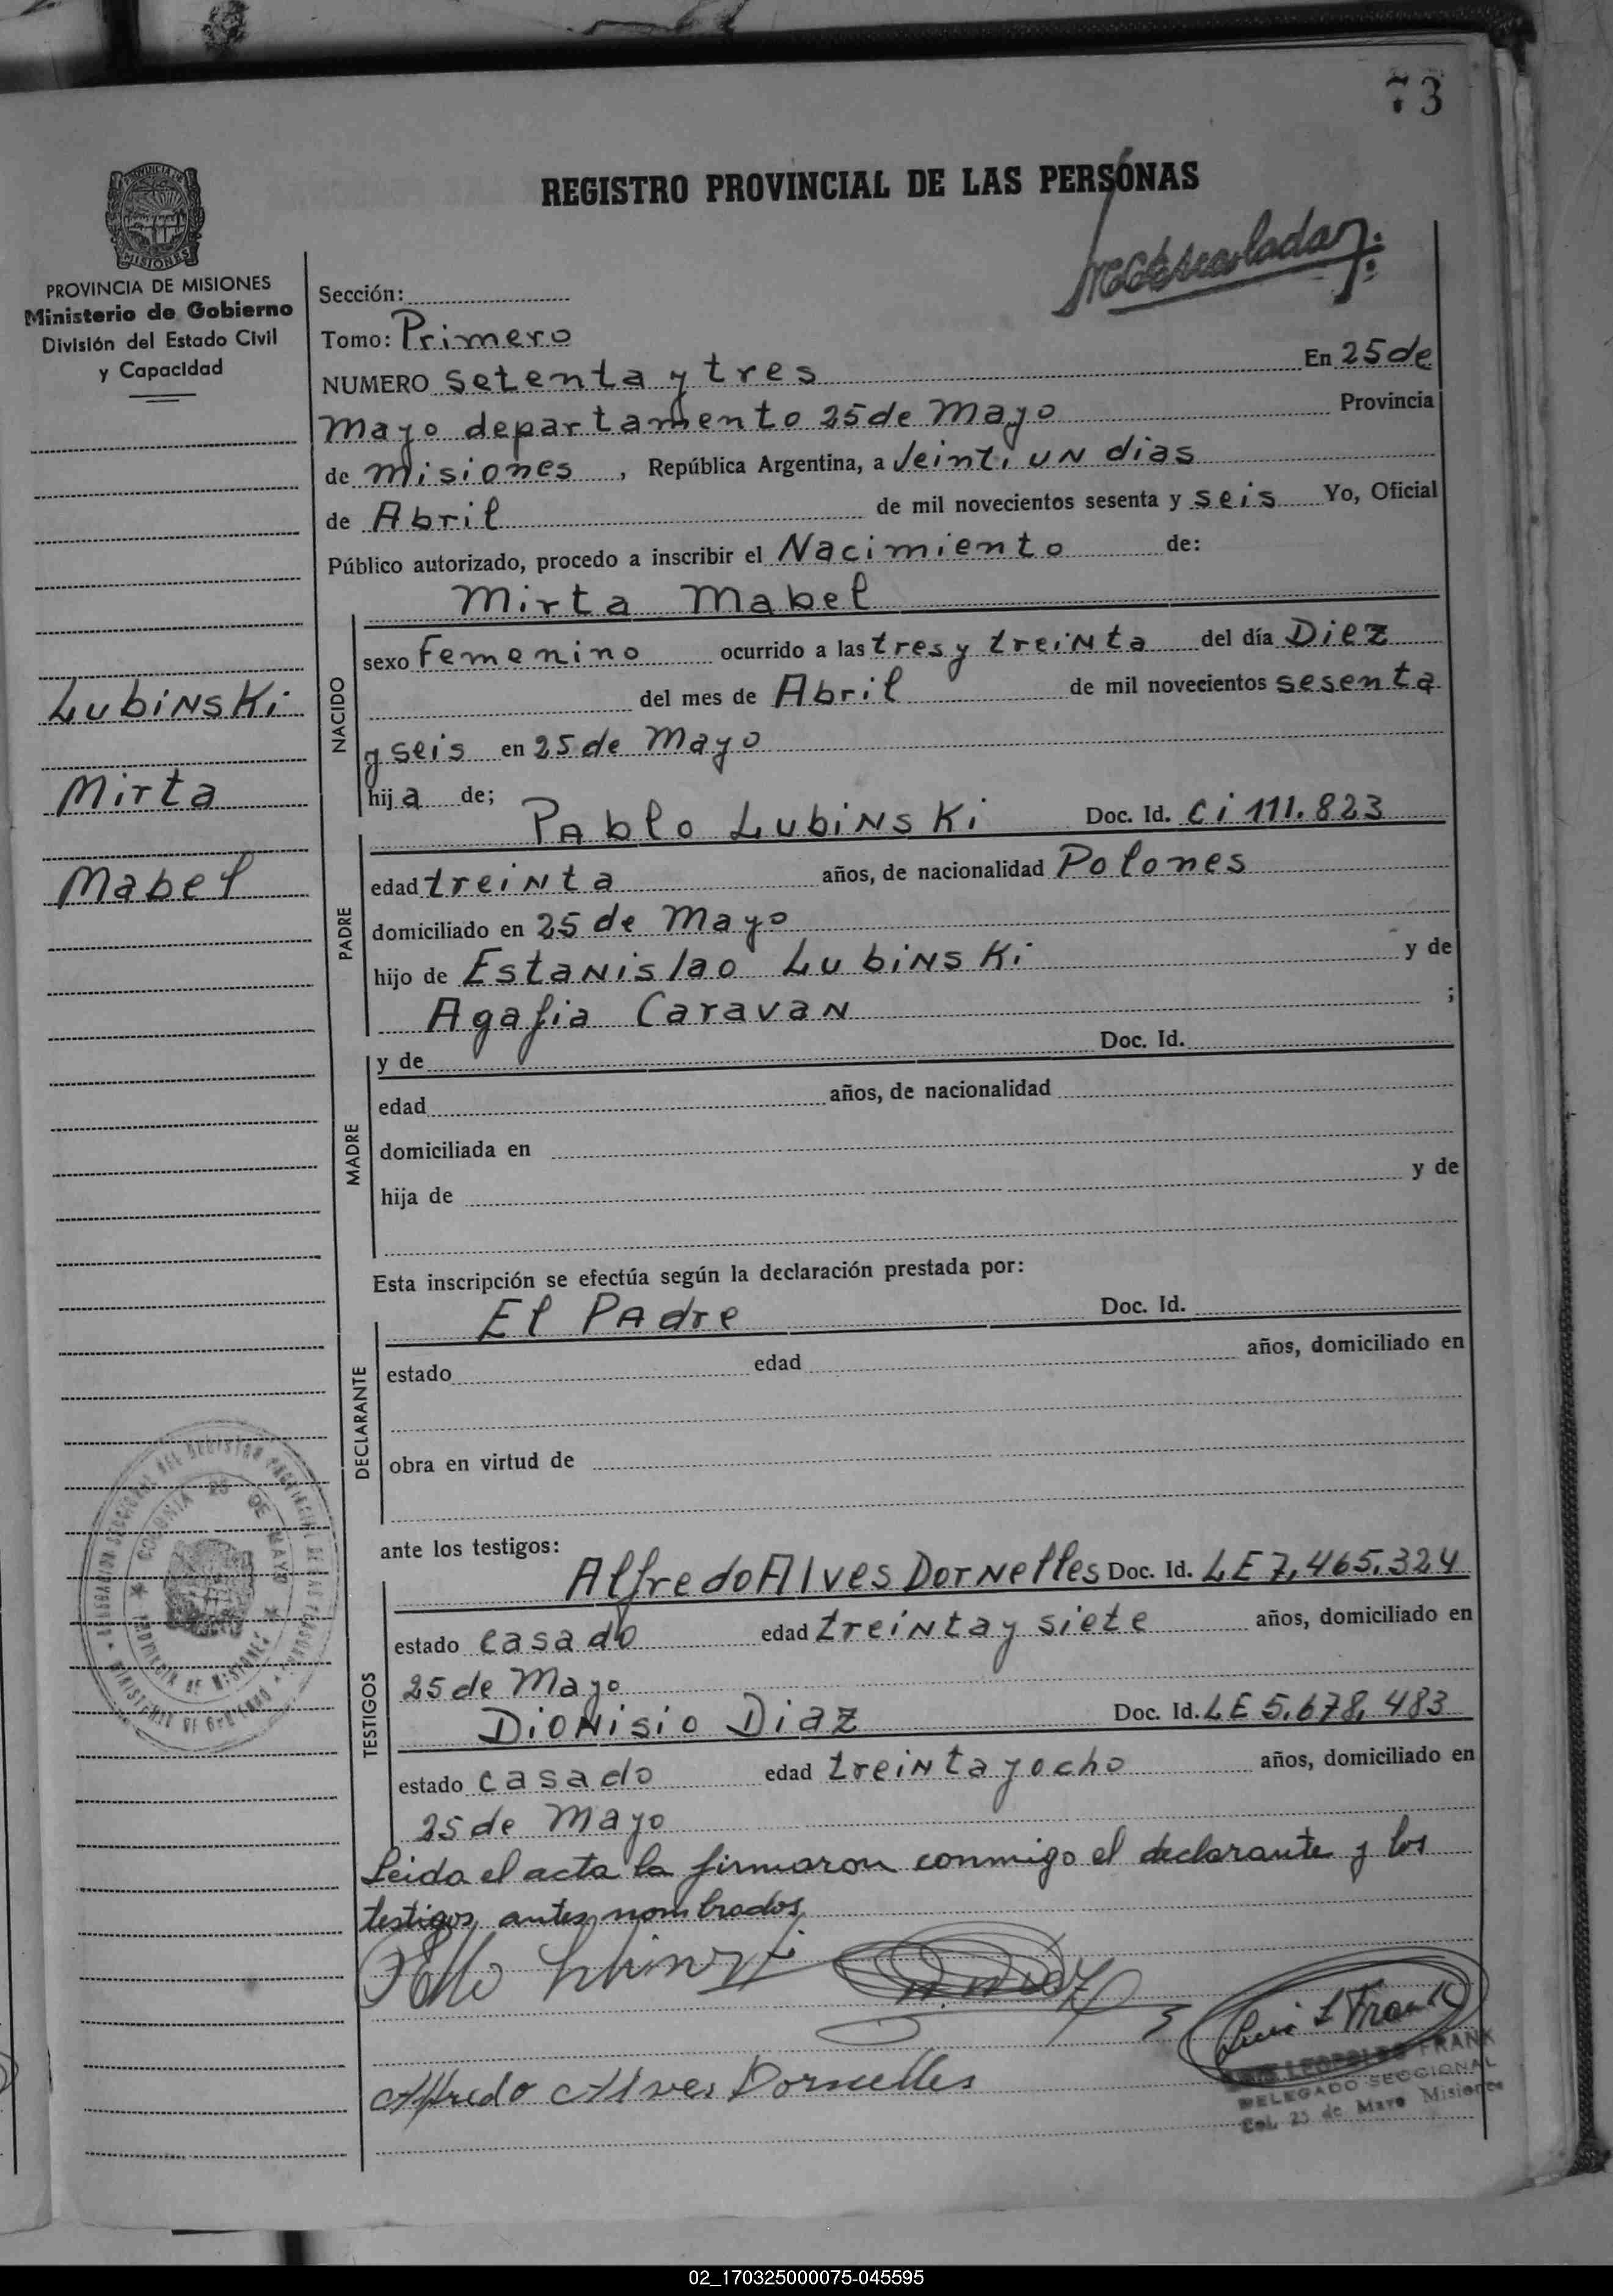 73
REGISTRO PROVINCIAL DE LAS PERSONAS
MISIONES
PROVINCIA DE MISIONES
Ministerio de Gobierno
División del Estado Civil
y Capacidad
Lubinski
Mirta
Mabel
Sección:
Tomo: Primero
NUMERO setenta y tres En 25 de
Mayo departamento 25 de Mayo Provincia
de Misiones, República Argentina, a Veinti un dias
de Abril de mil novecientos sesenta y seis Yo, Oficial
Público autorizado, procedo a inscribir el Nacimiento de:
Mirta Mabel
NACIDO
sexo Femenino ocurrido a las tres y treinta del día Diez
del mes de Abril de mil novecientos sesenta
y seis en 25 de Mayo
hija de;
PADRE
Pablo Lubinski Doc. Id. Ci 111.823
edad treinta años, de nacionalidad Polones
domiciliado en 25 de Mayo
hijo de Estanislao Lubinski y de
Agafia Caravan ;
MADRE
y de Doc. Id.
edad años, de nacionalidad
domiciliada en
hija de y de
Esta inscripción se efectúa según la declaración prestada por:
DECLARANTE
El Padre Doc. Id.
estado edad años, domiciliado en
obra en virtud de
ante los testigos:
TESTIGOS
Alfredo Alves Dornelles Doc. Id. LE 7,465.324
estado casado edad treinta y siete años, domiciliado en
25 de Mayo
Dionisio Diaz Doc. Id. LE 5,678,483
estado casado edad treinta y ocho años, domiciliado en
25 de Mayo
Leida el acta la firmaron conmigo el declarante y los
testigos antes nombrados
Alfredo Alves Dornelles
Luis L Frank
LUIS LEOPOLDO FRANK
DELEGADO SECCIONAL
Col. 25 de Mayo Misiones
COLONIA 25 DE MAYO
02_170325000075-045595